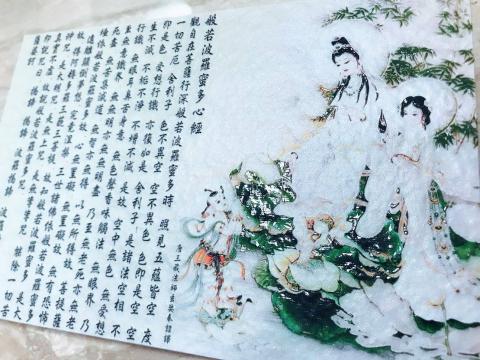 般若波羅蜜多心經
觀自在菩薩 行深般若波羅蜜多時 照見五蘊皆空 度
一切苦厄 舍利子 色不異空 空不異色 色即是空 空
即是色 受想行識 亦復如是 舍利子 是諸法空相 不
生不滅 不垢不淨 不增不減 是故 空中無色 無受想
行識 無眼耳鼻舌身意 無色聲香味觸法 無眼界 乃
至無意識界 無無明 亦無無明盡 乃至無老死 亦無老
死盡 無苦集滅道 無智亦無得 以無所得故 菩提薩
埵 依般若波羅蜜多故 心無罣礙 無罣礙故 無有恐怖
遠離顛倒夢想 究竟涅槃 三世諸佛 依般若波羅蜜多
故 得阿耨多羅三藐三菩提 故知般若波羅蜜多 是大
神咒 是大明咒 是無上咒 是無等等咒 能除一切苦
真實不虛 故說般若波羅蜜多咒
即說咒曰 揭諦揭諦 波羅
薩婆訶
唐三藏法師玄奘奉詔譯